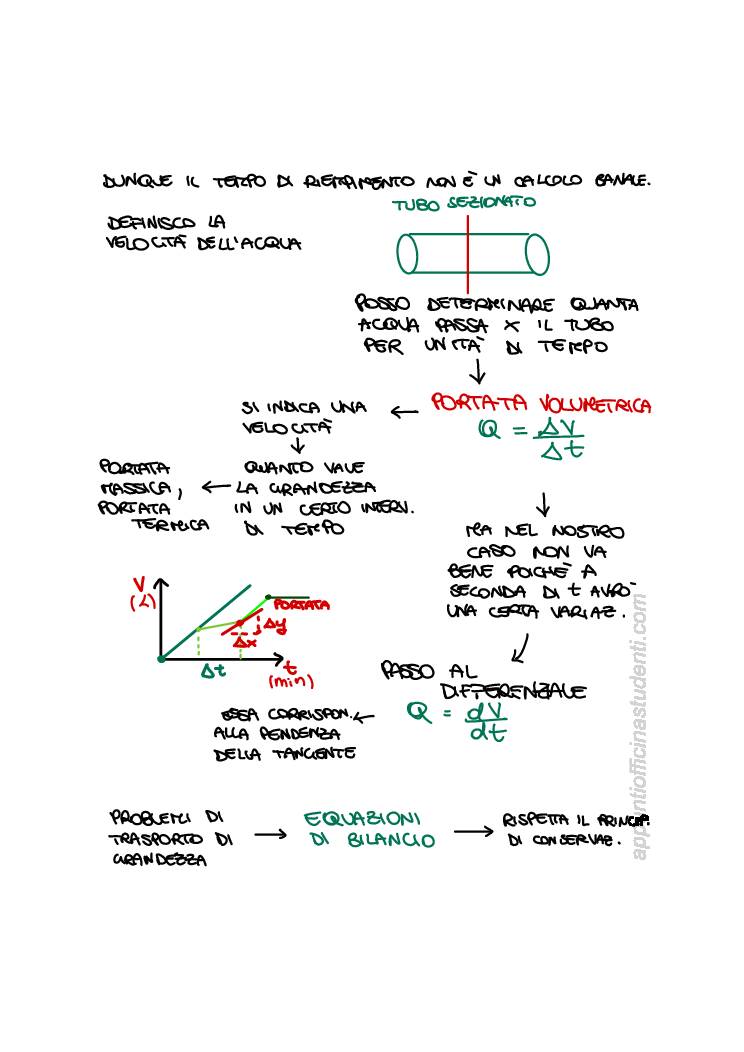 DUNQUE IL TEMPO DI RIEMPIMENTO NON È UN CALCOLO BANALE.
TUBO SEZIONATO
DEFINISCO LA
VELOCITÀ DELL'ACQUA
POSSO DETERMINARE QUANTA
ACQUA PASSA X IL TUBO
PER UNITÀ DI TEMPO
PORTATA VOLUMETRICA
Q = ΔV
Δt
SI INDICA UNA
VELOCITÀ
QUANTO VALE
LA GRANDEZZA
IN UN CERTO INTERV.
DI TEMPO
PORTATA
MASSICA,
PORTATA
TERMICA
MA NEL NOSTRO
CASO NON VA
BENE POICHÈ A
SECONDA DI t AVRO'
UNA CERTA VARIAZ.
V
(L)
PORTATA
Δy
Δx
Δt
t
(min)
PASSO AL
DIFFERENZIALE
Q = dV
dt
ESSA CORRISPON.
ALLA PENDENZA
DELLA TANGENTE
PROBLEMI DI
TRASPORTO DI
GRANDEZZA
EQUAZIONI
DI BILANCIO
RISPETTA IL PRINCIP.
DI CONSERVAZ.
appuntiofficinastudenti.com